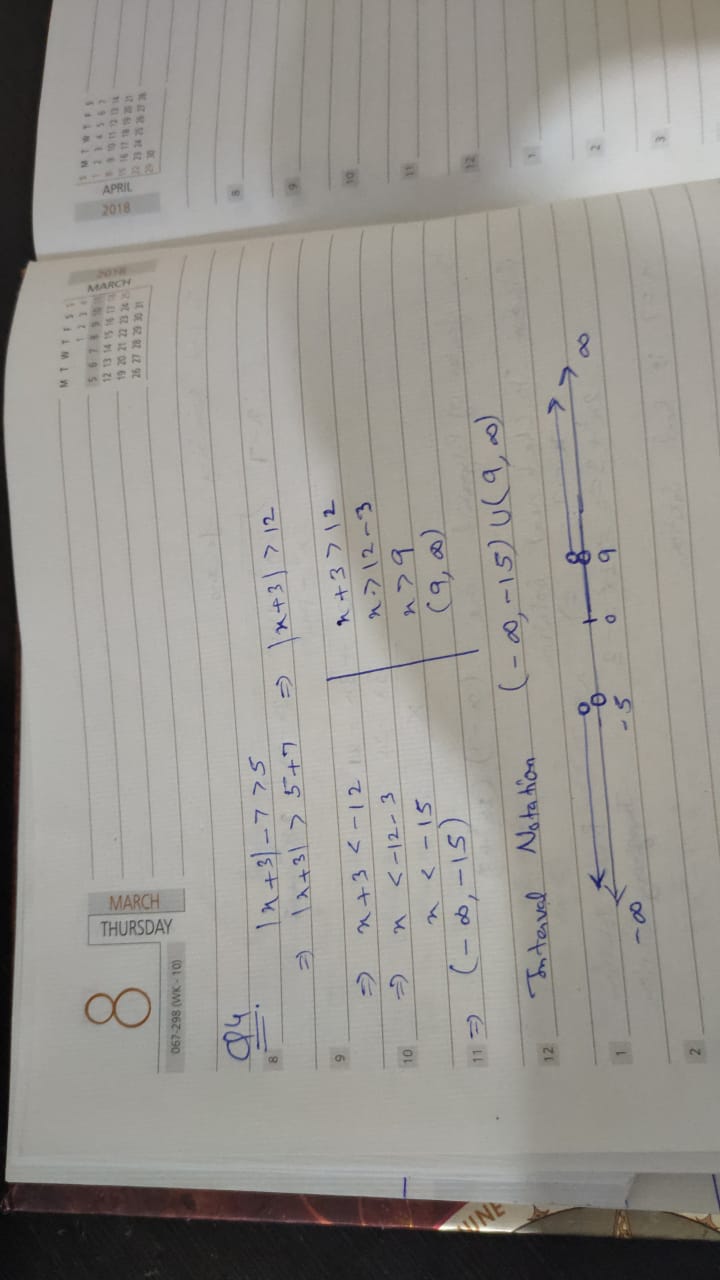 S M T W T F S
1 2 3 4 5 6 7
8 9 10 11 12 13 14
15 16 17 18 19 20 21
22 23 24 25 26 27 28
29 30
APRIL
2018
8
9
10
11
12
1
2
3
2018
MARCH
M T W T F S S
1 2 3 4
5 6 7 8 9 10 11
12 13 14 15 16 17 18
19 20 21 22 23 24 25
26 27 28 29 30 31
8
MARCH
THURSDAY
067-298 (WK - 10)
Q4.
8 |x+3|-7>5
⇒ |x+3| > 5+7 ⇒ |x+3| > 12
9 ⇒ x+3 < -12 x+3 > 12
10 ⇒ x < -12-3 x > 12-3
x < -15 x > 9
11 ⇒ (-∞, -15) (9, ∞)
12 Interval Notation (-∞, -15) U (9, ∞)
1 -∞ -5 0 9 ∞
2
UNE